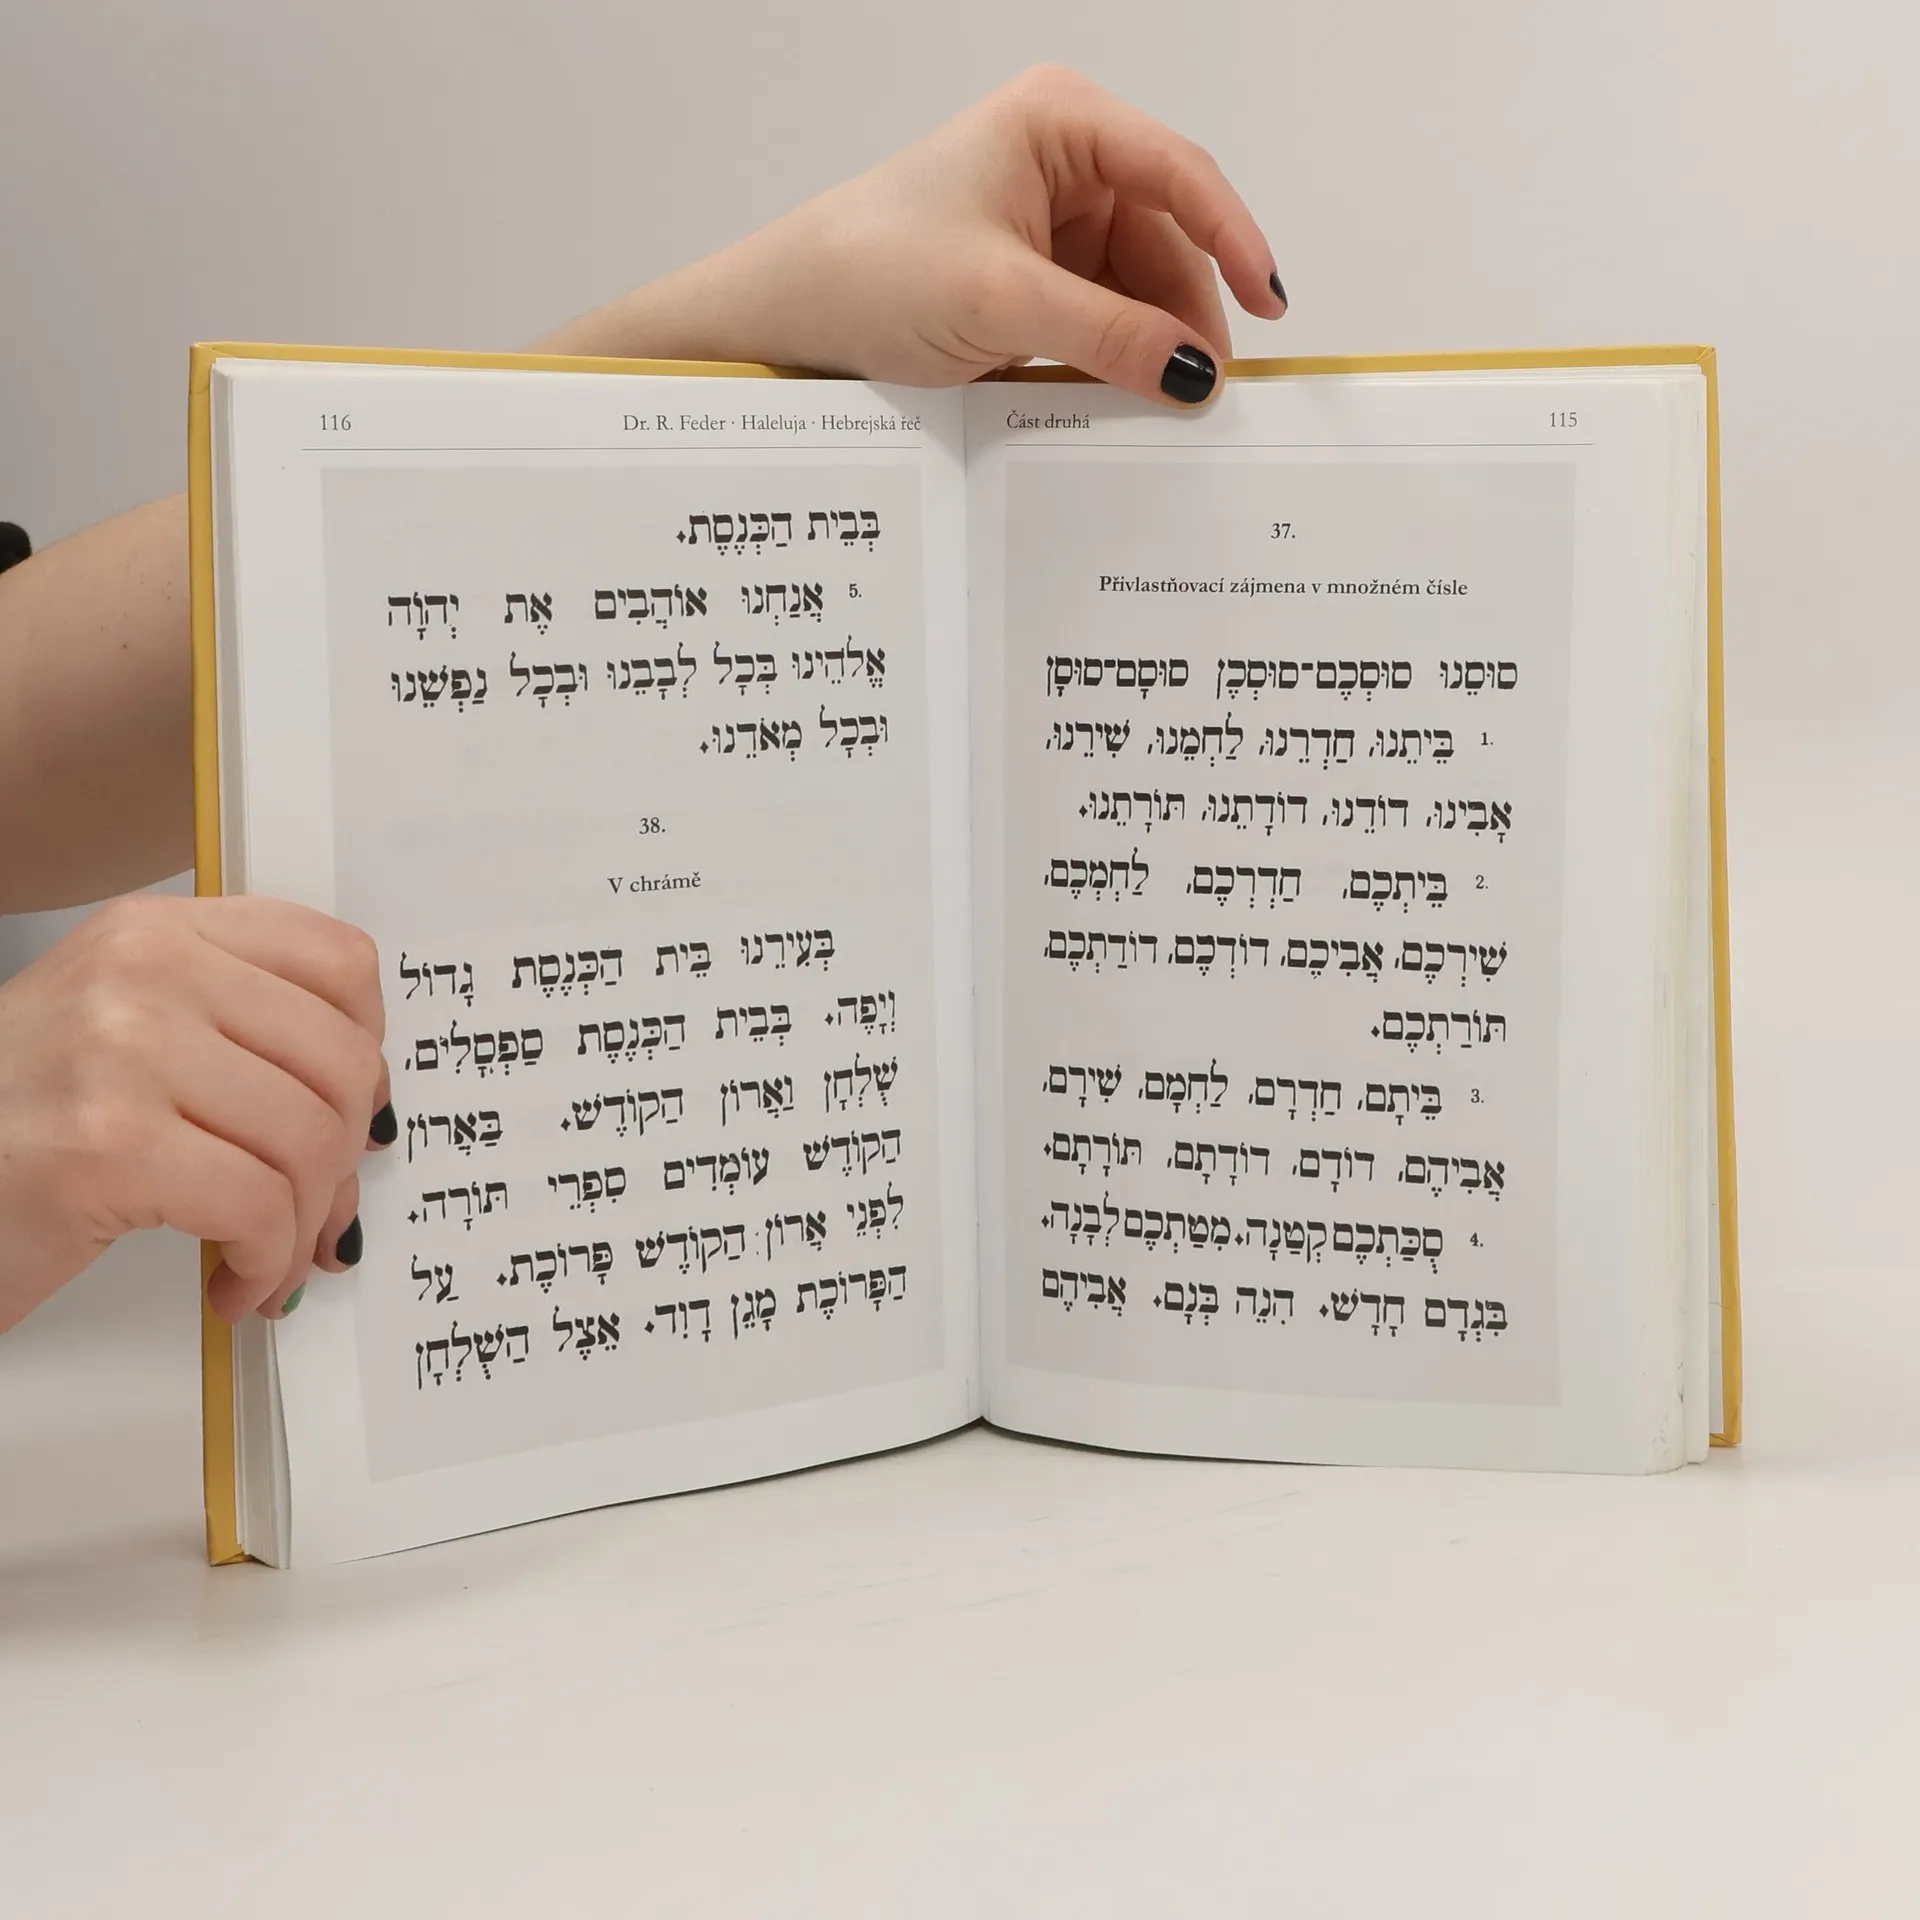 Část druhá 115
37.
Přivlastňovací zájmena v množném čísle
סוּסֵנוּ סוּסְכֶם־סוּסְכֶן סוּסָם־סוּסָן
1. בֵּיתֵנוּ, חַדְרֵנוּ, לַחְמֵנוּ, שִׁירֵנוּ,
אָבִינוּ, דוֹדֵנוּ, דוֹדָתֵנוּ, תּוֹרָתֵנוּ.
2. בֵּיתְכֶם, חַדְרְכֶם, לַחְמְכֶם,
שִׁירְכֶם, אֲבִיכֶם, דוֹדְכֶם, דוֹדַתְכֶם,
תּוֹרַתְכֶם.
3. בֵּיתָם, חַדְרָם, לַחְמָם, שִׁירָם,
אֲבִיהֶם, דוֹדָם, דוֹדָתָם, תּוֹרָתָם.
4. סֻכַּתְכֶם קְטַנָּה. מִטַּתְכֶם לְבָנָה.
בִּגְדָם חָדָשׁ. הִנֵּה בְּנָם. אֲבִיהֶם
116 Dr. R. Feder · Haleluja · Hebrejská řeč
בְּבֵית הַכְּנֶסֶת.
5. אֲנַחְנוּ אוֹהֲבִים אֶת יְהוָֹה
אֱלֹהֵינוּ בְּכָל לְבָבֵנוּ וּבְכָל נַפְשֵׁנוּ
וּבְכָל מְאֹדֵנוּ.
38.
V chrámě
בְּעִירֵנוּ בֵּית הַכְּנֶסֶת גָּדוֹל
וְיָפֶה. בְּבֵית הַכְּנֶסֶת סַפְסָלִים,
שֻׁלְחָן וַאֲרוֹן הַקוֹדֶשׁ. בַּאֲרוֹן
הַקוֹדֶשׁ עוֹמְדִים סִפְרֵי תּוֹרָה.
לִפְנֵי אֲרוֹן הַקוֹדֶשׁ פָּרוֹכֶת. עַל
הַפָּרוֹכֶת מָגֵן דָּוִד. אֵצֶל הַשֻּׁלְחָן